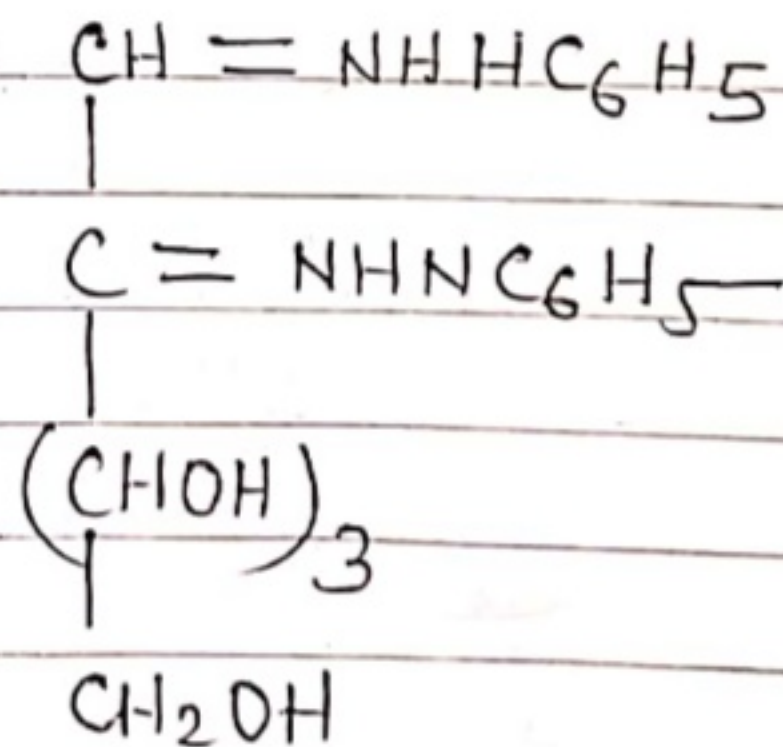 CH = NHHC6H5
|
C = NHNC6H5—
|
(CHOH)3
|
CH2OH